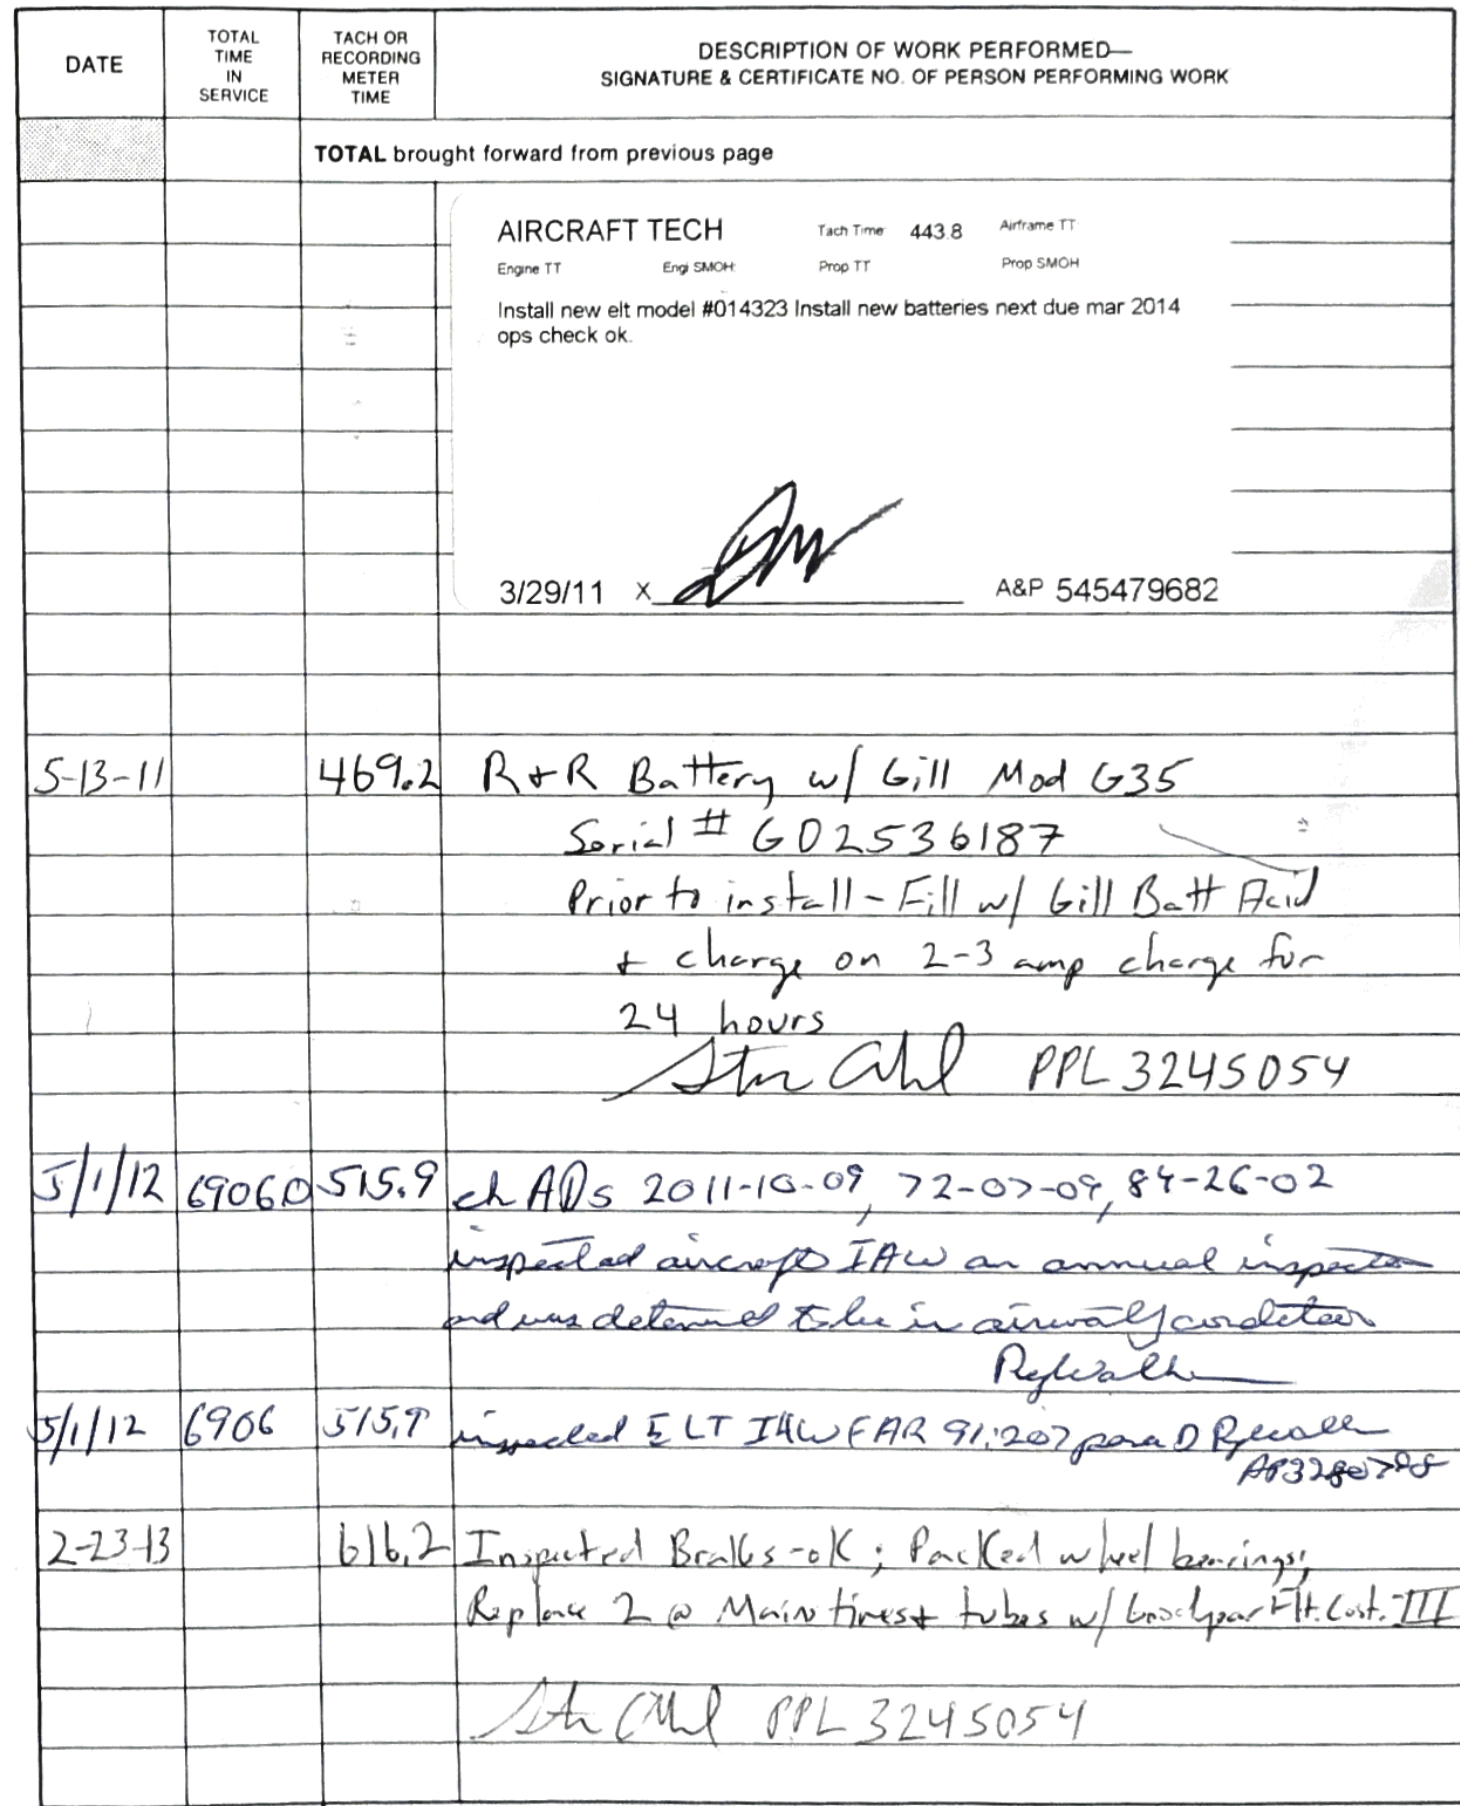 DATE
TOTAL TIME IN SERVICE
TACH OR RECORDING METER TIME
DESCRIPTION OF WORK PERFORMED—
SIGNATURE & CERTIFICATE NO. OF PERSON PERFORMING WORK
TOTAL brought forward from previous page
AIRCRAFT TECH Tach Time 443.8 Airframe TT
Engine TT Engi SMOH: Prop TT Prop SMOH
Install new elt model #014323 Install new batteries next due mar 2014
ops check ok.
3/29/11 x A&P 545479682
5-13-11 469.2 R+R Battery w/ Gill Mod G35
Serial # G02536187
Prior to install - Fill w/ Gill Batt Acid
+ charge on 2-3 amp charge for
24 hours
PPL 3245054
5/1/12 6906.0 515.9 ch ADs 2011-10-09, 72-07-09, 84-26-02
inspected aircraft IAW an annual inspection
and was determined to be in airworthy condition
5/1/12 6906 515.9 inspected ELT IAW FAR 91.207 para D
2-23-13 616.2 Inspected Brakes-OK; Packed wheel bearings;
Replace 2 @ Main tires + tubes w/ Goodyear Flt. Cust. III
PPL 3245054